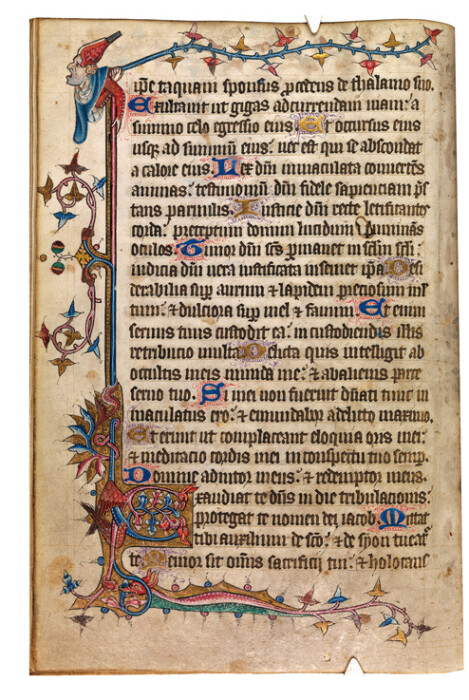 ip̄e taquam sponsus p̄cedens de thalamo suo.
Exultauit ut gigas ad currendam uiam: a
summo celo egressio eius Et occursus eius
usq; ad summū eius: nec est qui se abscondat
a calore eius Lex dn̄i inmaculata conuertens
animas: testimoniū dn̄i fidele sapienciam p̄s
tans paruulis Iusticie dn̄i recte letificantes
corda: preceptum domini lucidum illuminās
oculos Timor dn̄i sc̄s permanet in sc̄lm sc̄li:
iudicia dn̄i uera iustificata in semet ip̄a Desi
derabilia sup̱ aurum & lapidem preciosum ml̄
tum: & dulciora sup̱ mel & fauum Et enim
seruus tuus custodit ea: in custodiendis illis
retribucio multa Delicta quis intelligit ab
occultis meis munda me: & ab alienis parce
seruo tuo. Si mei non fuerint dn̄ati tunc in
maculatus ero: & emundabor a delicto maximo.
Et erunt ut complaceant eloquia oris mei:
& meditacio cordis mei in conspectu tuo semp̱.
Domine adiutor meus: & redemptor meus.
Exaudiat te dn̄s in die tribulacionis:
protegat te nomen dei iacob Mittat
tibi auxilium de sc̄o: & de syon tueat᷑
te Memor sit omīs sacrificii tui: & holocaus